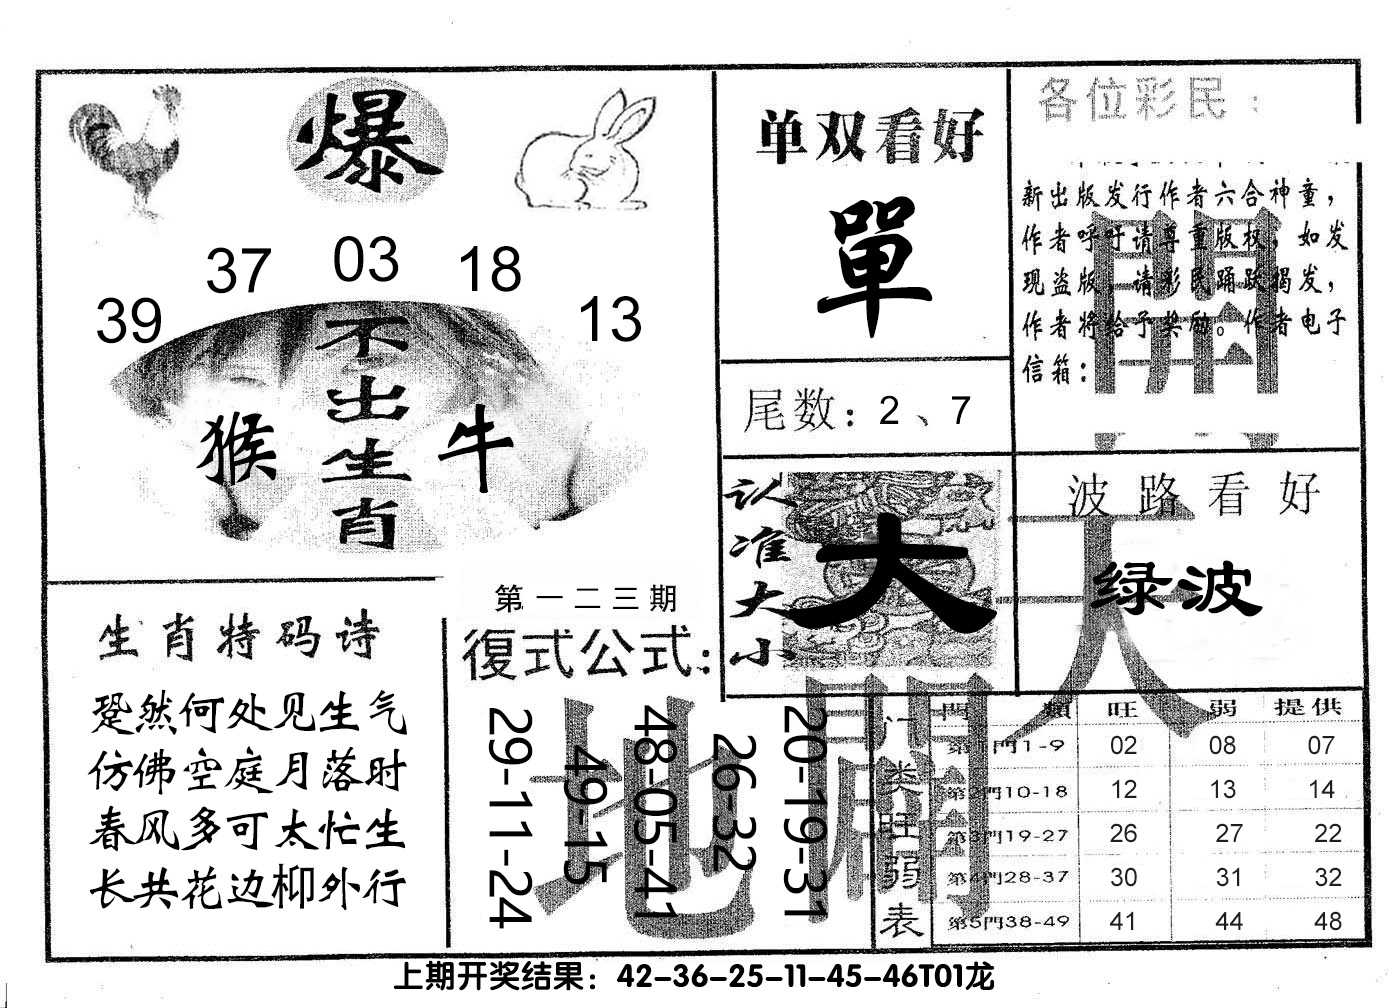 爆
37 03 18
39 13
不出生肖
猴 牛
单双看好
單
尾数：2、7
认准大小
大
各位彩民：
新出版发行作者六合神童，
作者呼吁请尊重版权，如发
现盗版，请彩民踊跃揭发，
作者将给予奖励。作者电子
信箱：
波路看好
绿波
生肖特码诗
跫然何处见生气
仿佛空庭月落时
春风多可太忙生
长共花边柳外行
第一二三期
復式公式：
29-11-24
49-15
48-05-41
26-32
20-19-31
天地
門类旺弱表
門類 旺 弱 提供
第1門1-9 02 08 07
第2門10-18 12 13 14
第3門19-27 26 27 22
第4門28-37 30 31 32
第5門38-49 41 44 48
上期开奖结果：42-36-25-11-45-46T01龙